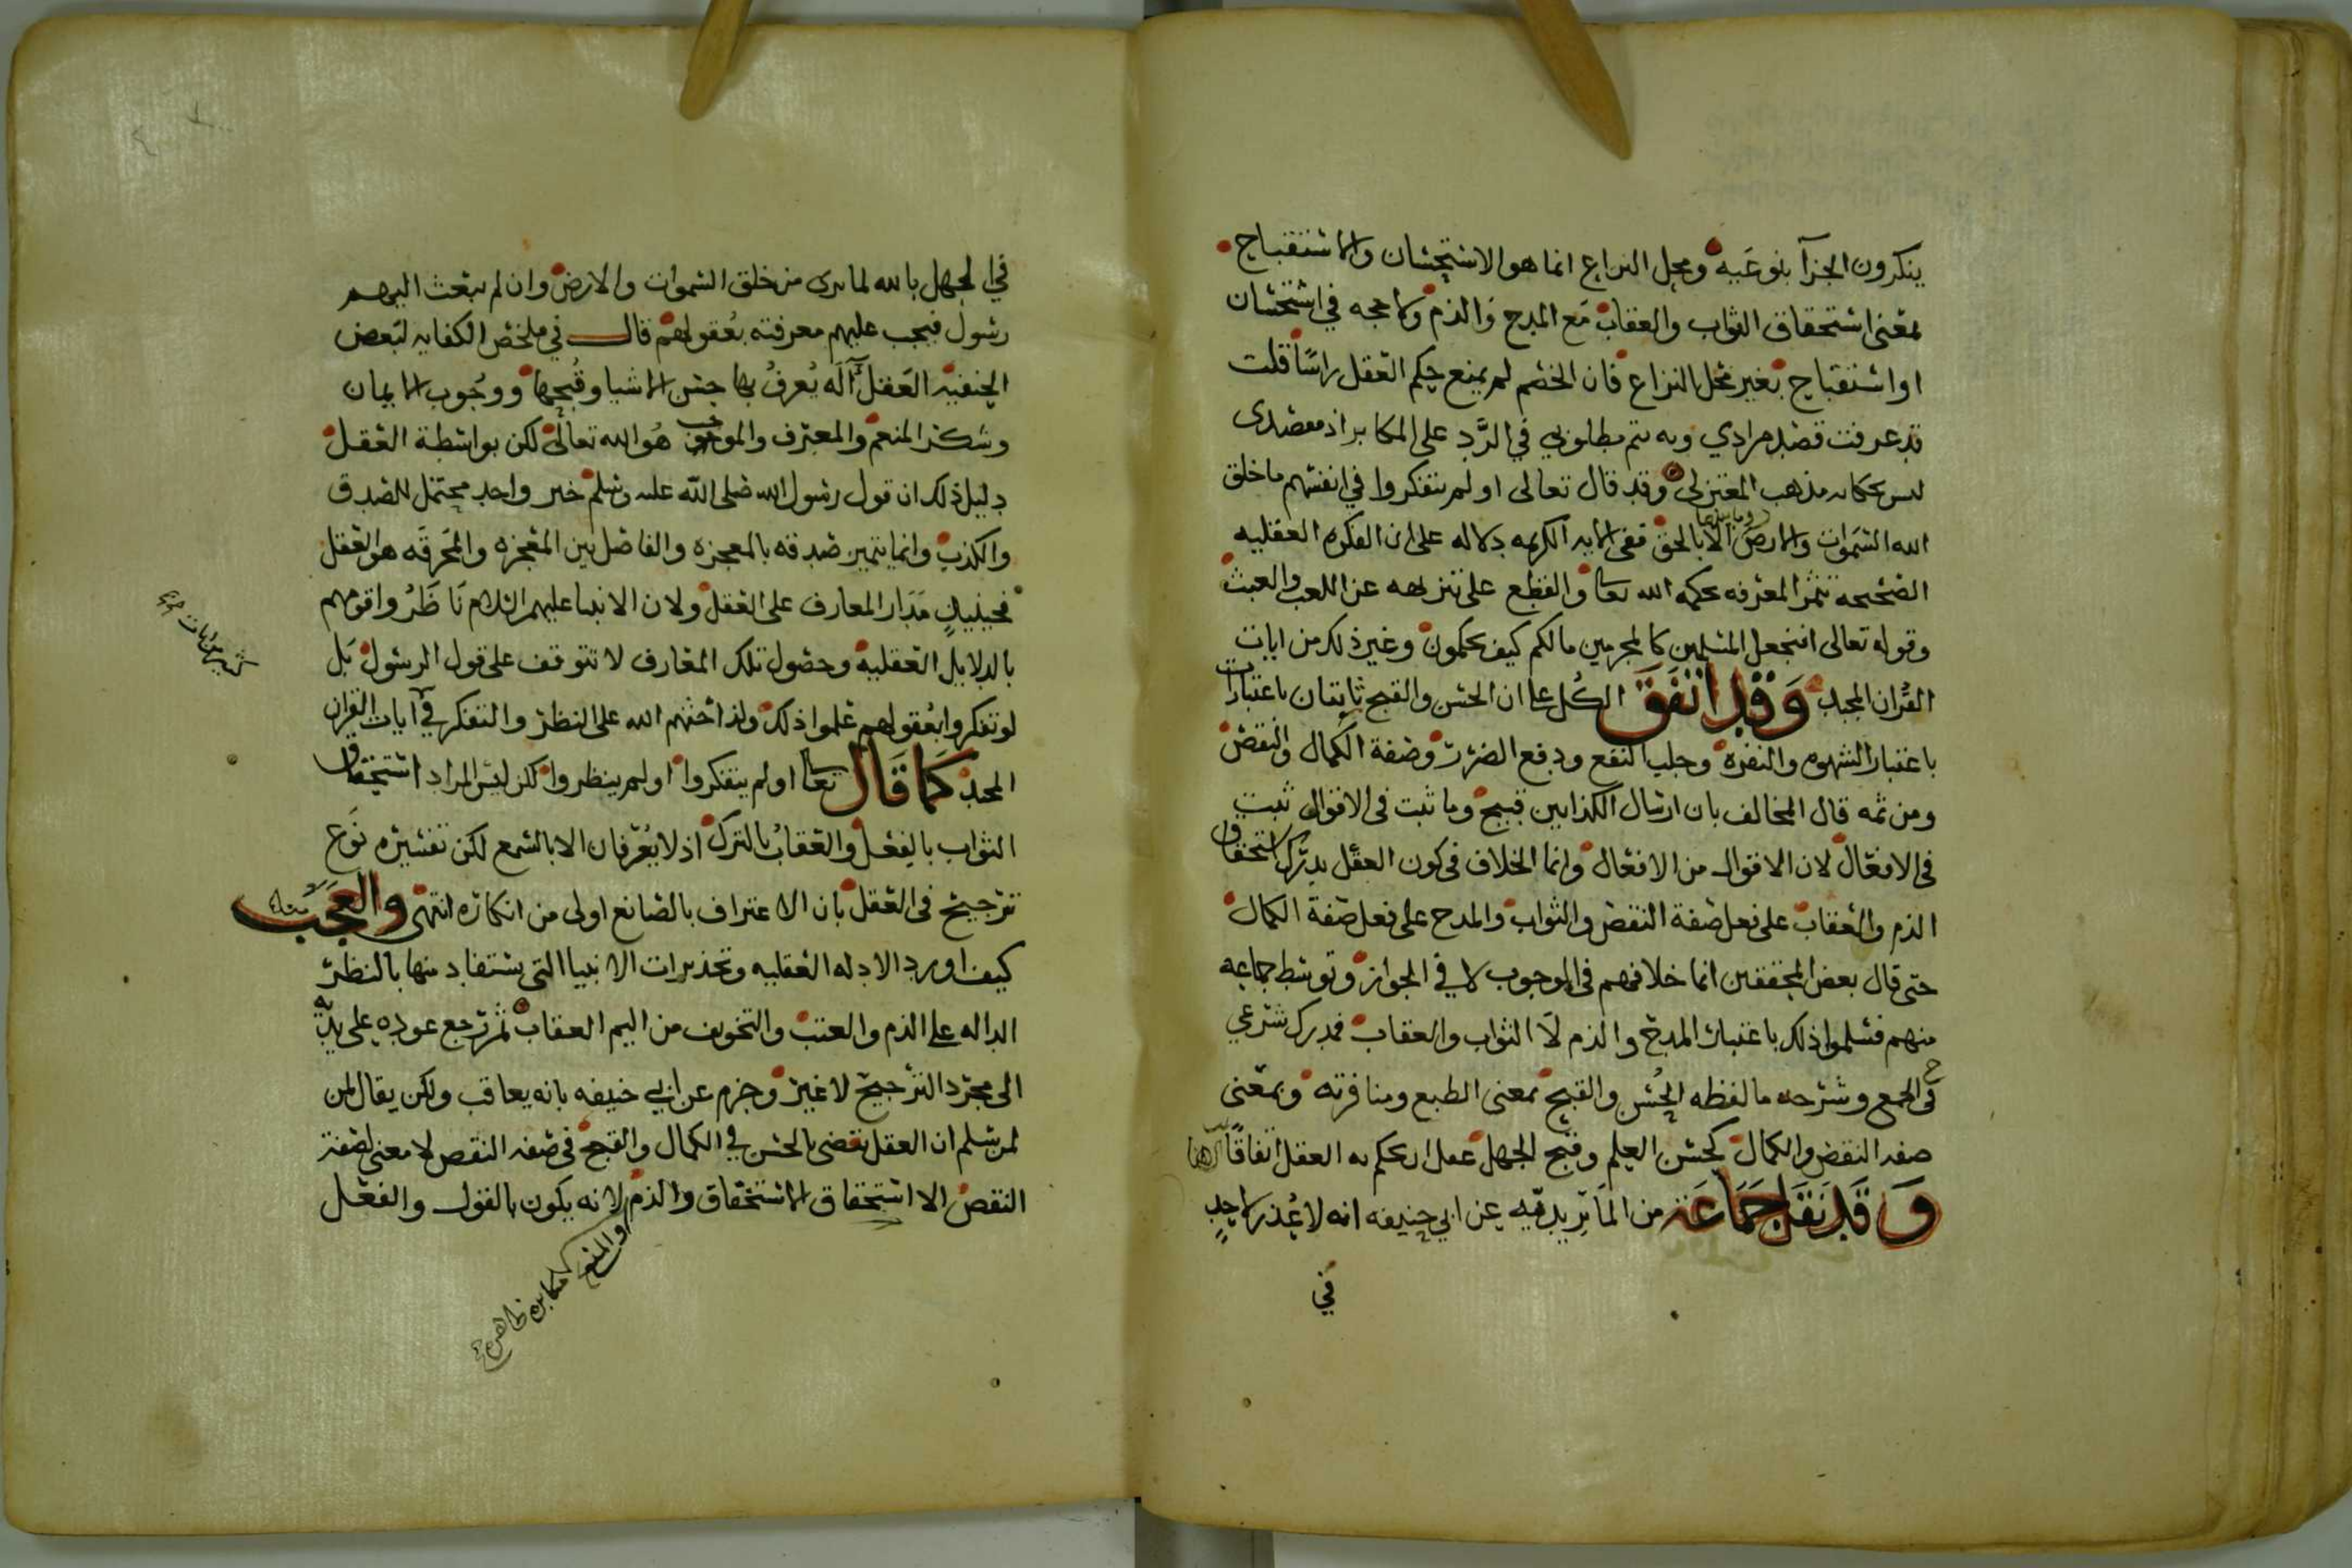 ينكرون الجزآ بنوعيه ومحل النزاع انما هو الاستحسان والاستقباح
بمعنى استحقاق الثواب والعقاب مع المدح والذم ولا حجه في استحسان
او استقباح بغير محل النزاع فان الخصم لم يمنع حكم العقل راسًا قلت
قد عرفت قصد مرادي وبه يتم مطلوبي في الرد على المكابر اذ مقصدى
ليس بحكايه مذهب المعتزلى وقد قال تعالى اولم يتفكروا في انفسهم ما خلق
الله السموات والارض وما بينهما الا بالحق ففى الايه الكريمه دلاله على ان الفكره العقليه
الصحيحه تثمر المعرفه بحكمه الله تعا والقطع على تنزهه عن اللعب والعبث
وقوله تعالى افنجعل المسلمين كالمجرمين مالكم كيف تحكمون وغير ذلك من ايات
القران المجيد وقد اتفق الكل على ان الحسن والقبح ثابتان باعتبارات
باعتبار الشهوه والنفره وجلب النفع ودفع الضرر وصفة الكمال والنقص
ومن ثمه قال المخالف بان ارسال الكذابين قبيح وما ثبت فى الاقوال ثبت
فى الافعال لان الاقوال من الافعال وانما الخلاف فى كون العقل يدرك استحقاق
الذم والعقاب على فعل صفة النقص والثواب والمدح على فعل صفة الكمال
حتى قال بعض المحققين انما خلافهم فى الوجوب لا في الجواز وتوسط جماعه
منهم فسلموا ذلك باعتبار المدح والذم لا الثواب والعقاب فمدرك شرعي
فى الجمع وشرحه ما لفظه الحسن والقبح بمعنى الطبع ومنافرته وبمعنى
صفه النقص والكمال كحسن العلم وقبح الجهل عقل اى يحكم به العقل اتفاقًا
وقد نقل جماعة من الماتريديه عن ابي حنيفه انه لا عذر لاحد
في
في الجهل بالله لما يرى من خلق السموات والارض وان لم يبعث اليهم
رسول فيجب عليهم معرفته بعقولهم قال في ملخص الكفايه لبعض
الحنفيه العقل آله يُعرف بها حسن الاشيا وقبحها ووجوب الايمان
وشكر المنعم والمعرف والموجب هو الله تعالى لكن بواسطة العقل
دليل ذلك ان قول رسول الله صلى الله عليه وسلم خبر واحد محتمل للصدق
والكذب وانما يتميز صدقه بالمعجزه والفاصل بين المعجزه والمخرقه هو العقل
فحينئذٍ مدار المعارف على العقل ولان الانبيا عليهم السلام ناظروا قومهم
بالدلايل العقليه وحصول تلك المعارف لا تتوقف على قول الرسول بل
لو تفكروا بعقولهم علموا ذلك ولذا حثهم الله على النظر والتفكر في آيات القران
المجيد كما قال تعا اولم يتفكروا اولم ينظروا لكن ليس المراد استحقاق
الثواب بالفعل والعقاب بالترك اذ لا يعرفان الا بالسمع لكن تفسيره نوع
ترجيح فى العقل بان الاعتراف بالصانع اولى من انكاره انتهى والعجب منه
كيف اورد الادله العقليه وتحذيرات الانبيا التى يستفاد منها بالنظر
الداله على الذم والعتب والتخويف من اليم العقاب ثم رجع عوده على بديه
الى مجرد الترجيح لا غير وجزم عن ابي حنيفه بانه يعاقب ولكن يقال لمن
لم يسلم ان العقل يقضى بالحسن في الكمال والقبح فى صفه النقص لا معنى لصفة
النقص الا استحقاق الاستخقاق والذم لانه يكون بالقول والفعل
والمنع مكابره ظاهره